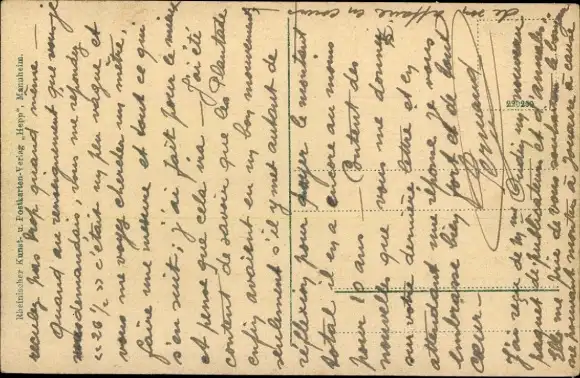 reculez pas trop quand même —
Quand au renseignement que vous
me demandais, vous me répondez
"26 ½" c'était un peu vague et
vous me voyez chercher un mètre,
faire une mesure et tout ce qui
s'en suit; j'ai fait pour le mieux
et pense que cela ira — J'ai été
content de savoir que les
enfin avaient eu un bon mouvement,
seulement s'il y met autant de
réflexion pour payer le montant
total il en a encore au moins
pour 10 ans — Content des
nouvelles que vous me donnez
sur votre dernière lettre et en
attendant une réponse je vous
embrasse bien fort et de tout
cœur —
Armand
J'ai reçu de M. et Mme un nouveau
paquet de publication et d'annales
Elle me prie de vous souhaiter le bonjour
à cause
de son affaire en cours
220200
Rheinischer Kunst- u. Postkarten-Verlag „Hepp", Mannheim.